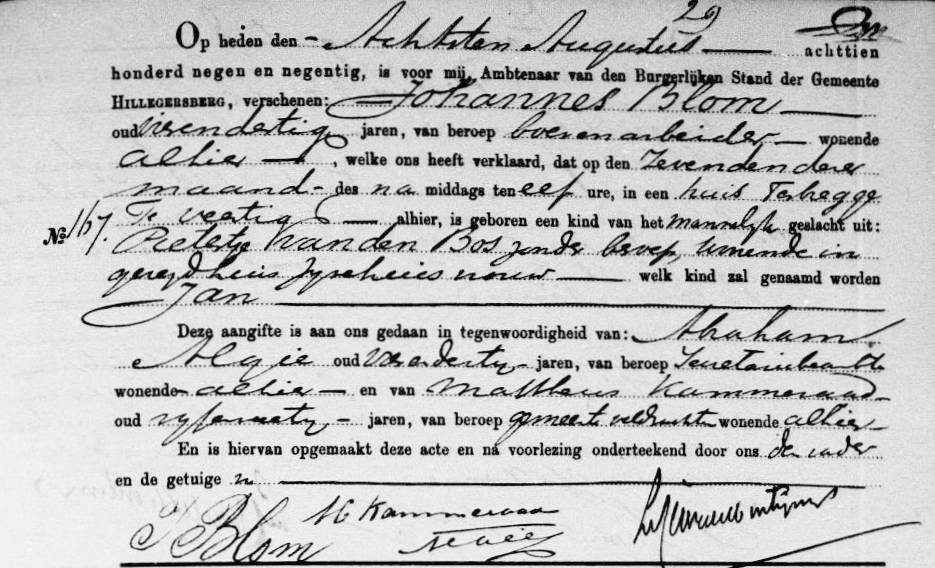 29
Op heden den Achtsten Augustus achttien
honderd negen en negentig, is voor mij, Ambtenaar van den Burgerlijken Stand der Gemeente
HILLEGERSBERG, verschenen: Johannes Blom
oud vierendertig jaren, van beroep boerenarbeider wonende
alhier, welke ons heeft verklaard, dat op den Zevenden dezer
maand des na middags ten elf ure, in een huis Terbregge
veertig alhier, is geboren een kind van het mannelijk geslacht uit:
No 167. Pietertje van den Bos zonder beroep, wonende in
gezegd huis zijne huisvrouw welk kind zal genaamd worden
Jan
Deze aangifte is aan ons gedaan in tegenwoordigheid van: Abraham
Algie oud jaren, van beroep
wonende alhier en van Mattheus Kammeraad
oud jaren, van beroep gemeente veldwachter wonende alhier
En is hiervan opgemaakt deze acte en na voorlezing onderteekend door ons de vader
en de getuige n
J Blom M Kammeraad